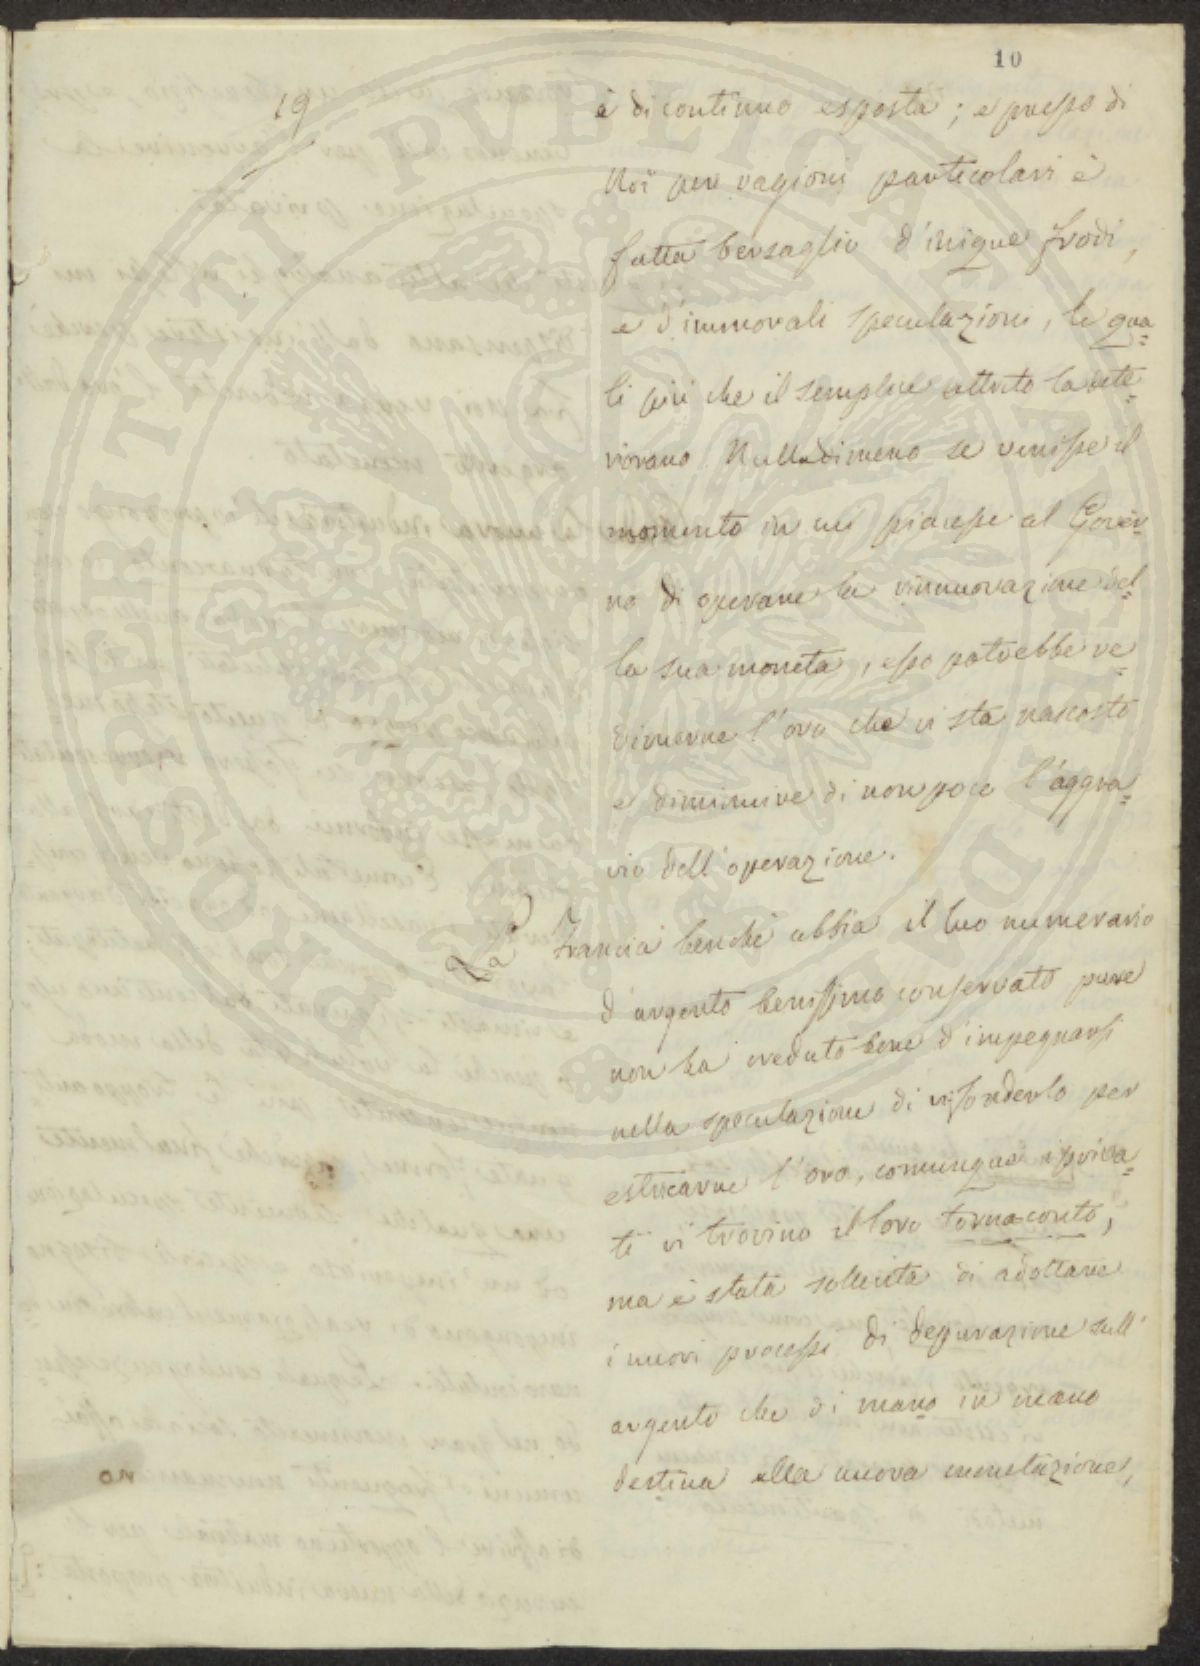 10
19
è di continuo esposta; e presso di
Noi per ragioni particolari è
fatta bersaglio d'inique frodi,
e d'immorali speculazioni, le qua=
li più che il semplice attrito la dete=
riorano. Nulladimeno se venisse il
momento in cui piacesse al Gover=
no di operare la rinnuovazione del=
la sua moneta, esso potrebbe re=
dimerne l'oro che vi sta nascosto
e diminuire di non poco l'aggra=
vio dell'operazione.
La Francia benchè abbia il suo numerario
d'argento benissimo conservato pure
non ha creduto bene d'impegnarsi
nella speculazione di rifonderlo per
estricarne l'oro, comunque i priva=
ti vi trovino il loro tornaconto,
ma è stata sollecita di adottare
i nuovi processi di depurazione sull'
argento che di mano in mano
destina alla nuova monetazione,
PROSPERITATI PVBLICAE